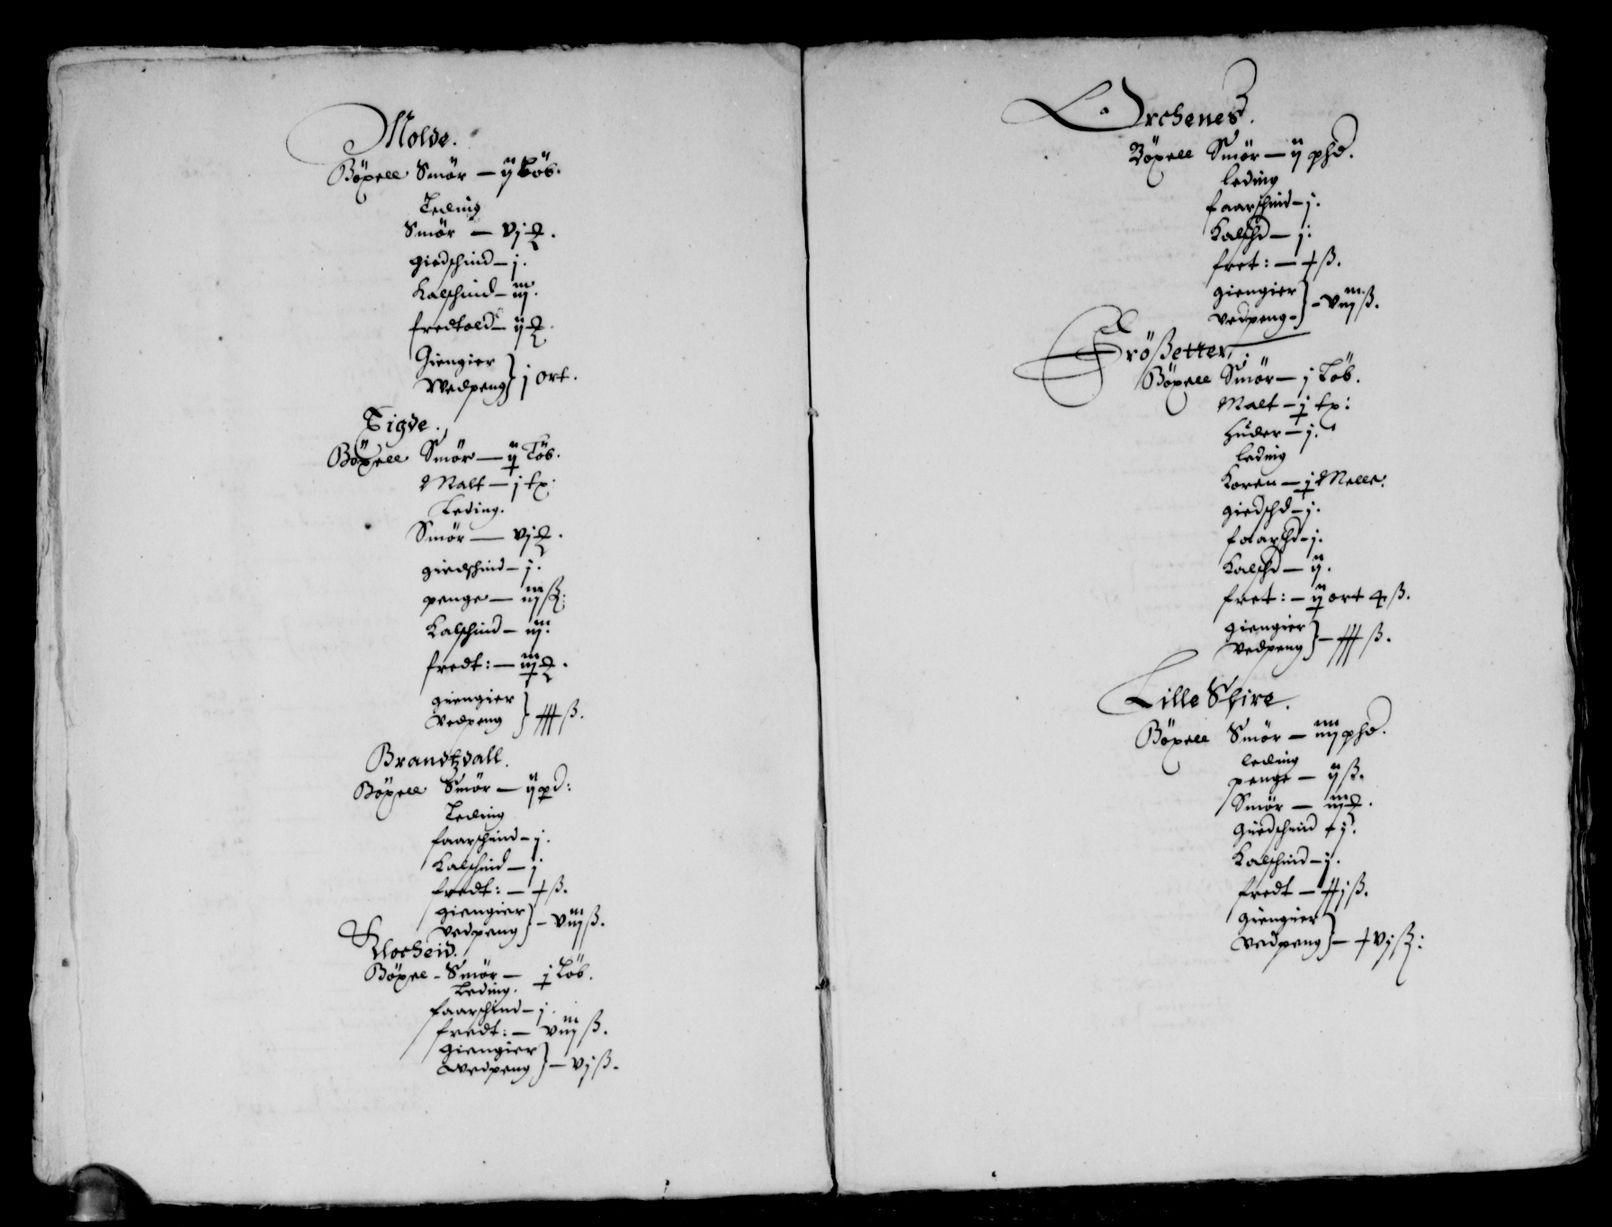 Molde.
Böxell Smör — ij Löb.
Leding
Smör — vj ℔.
giedschind — j.
Kalschind — iij.
fredtold — ij ℔.
Giengier
Wedpeng } j ort.
Tigde.
Böxell Smör — ij Löb.
Malt — j tp.
Leding.
Smör — vj ℔.
giedschind — j.
penge — iiij ß:
Kalschind — iij.
fredt: — iiij ℔.
giengier
Vedpeng } ß.
Brandtzdall.
Böxell Smör — ij pd:
Leding
faarschind — j.
Kalschind — j
fredt: — + ß.
giengier
Vedpeng } — viij ß.
Klocheid.
Böxel - Smör — j Löb.
Leding.
faarschind — j.
fredt: — viij ß.
giengier
Wedpeng } — vj ß.
Orchenes.
Böxell Smör — ij phd.
leding
faarschind — j.
Kalschd — j:
fret: — + ß.
giengier
vedpeng } — viij ß.
Frößetter.
Böxell Smör — j Löb.
Malt — j tp:
Huder — j.
leding
Koren — j Melle.
giedschd — j.
faarschd — j.
Kalschd — ij.
fret: — ij ort 4 ß.
giengier
Vedpeng } — ß.
Lille Schire.
Böxell Smör — iiij phd.
leding
penge — ij ß.
Smör — iij ℔.
Giedschind + j.
Kalschind — j.
fredt — ++j ß.
giengier
Vedpeng } — + vj ß: